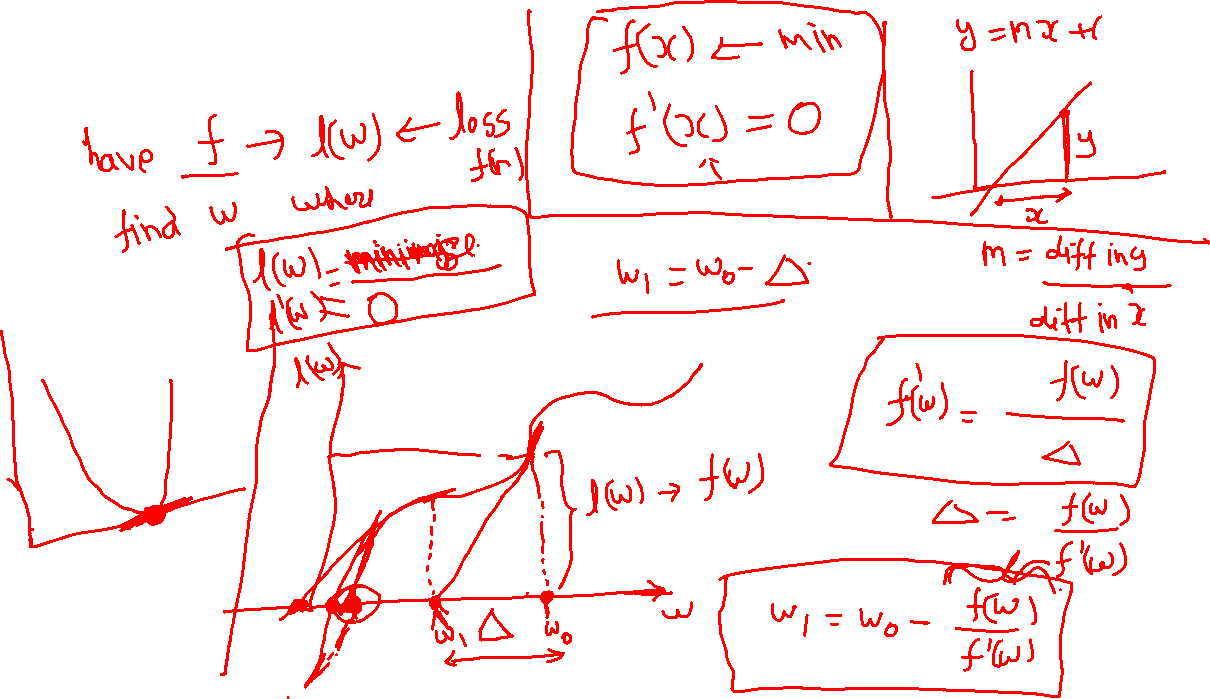 have f → l(w) ← loss
f(n)
find w where
l(w) = minimize.
l'(w) = 0
f(x) ← min
f'(x) = 0
y = mx + c
y
x
m = diff in y
diff in x
w₁ = w₀ - Δ
f'(w) = f(w)
Δ
Δ = f(w)
f'(w)
w₁ = w₀ - f(w)
f'(w)
l(w)
l(w) → f(w)
w₁ Δ w₀
w